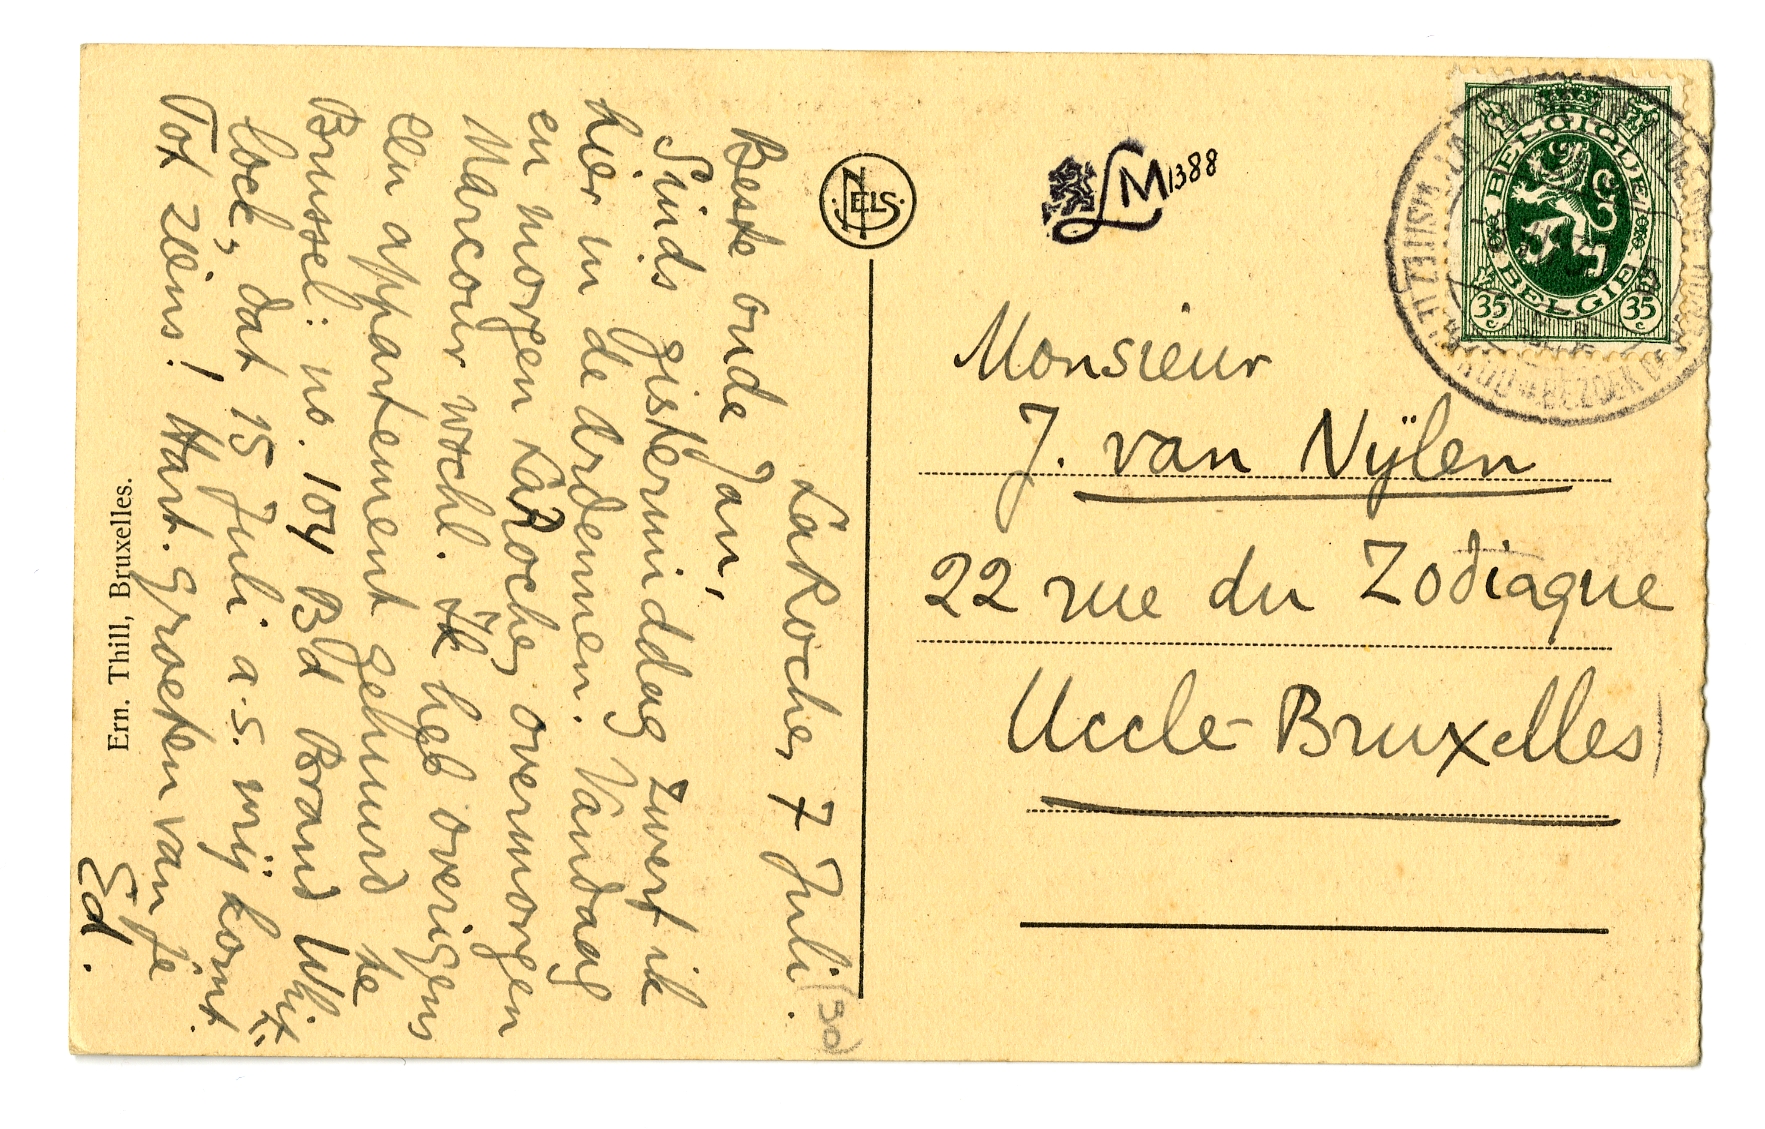 LaRoche, 7 Juli.
(30)
Beste oude Jan,
Sinds gistermiddag zwerf ik
hier in de ardennen. Vandaag
en morgen LaRoche, overmorgen
Marcour wschl. Ik heb overigens
een appartement gehuurd te
Brussel: no. 104 Bld Brand Whit-
lock, dat 15 Juli a.s. vrij komt.
Tot ziens! Hart. groeten van je
Ed.
Ern. Thill, Bruxelles.
NELS
LM 1388
BELGIQUE
BELGIË
35 c
35 c
BEZOEK
VISITEZ
Monsieur
J. van Nÿlen
22 rue du Zodiaque
Uccle-Bruxelles